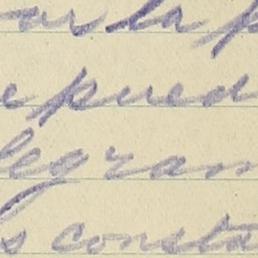 asta p
e pued
legram
s consta